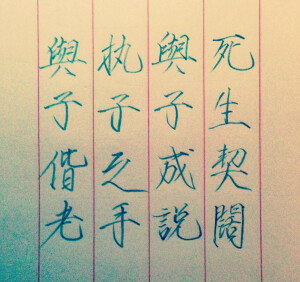 死生契闊
與子成説
执子之手
與子偕老